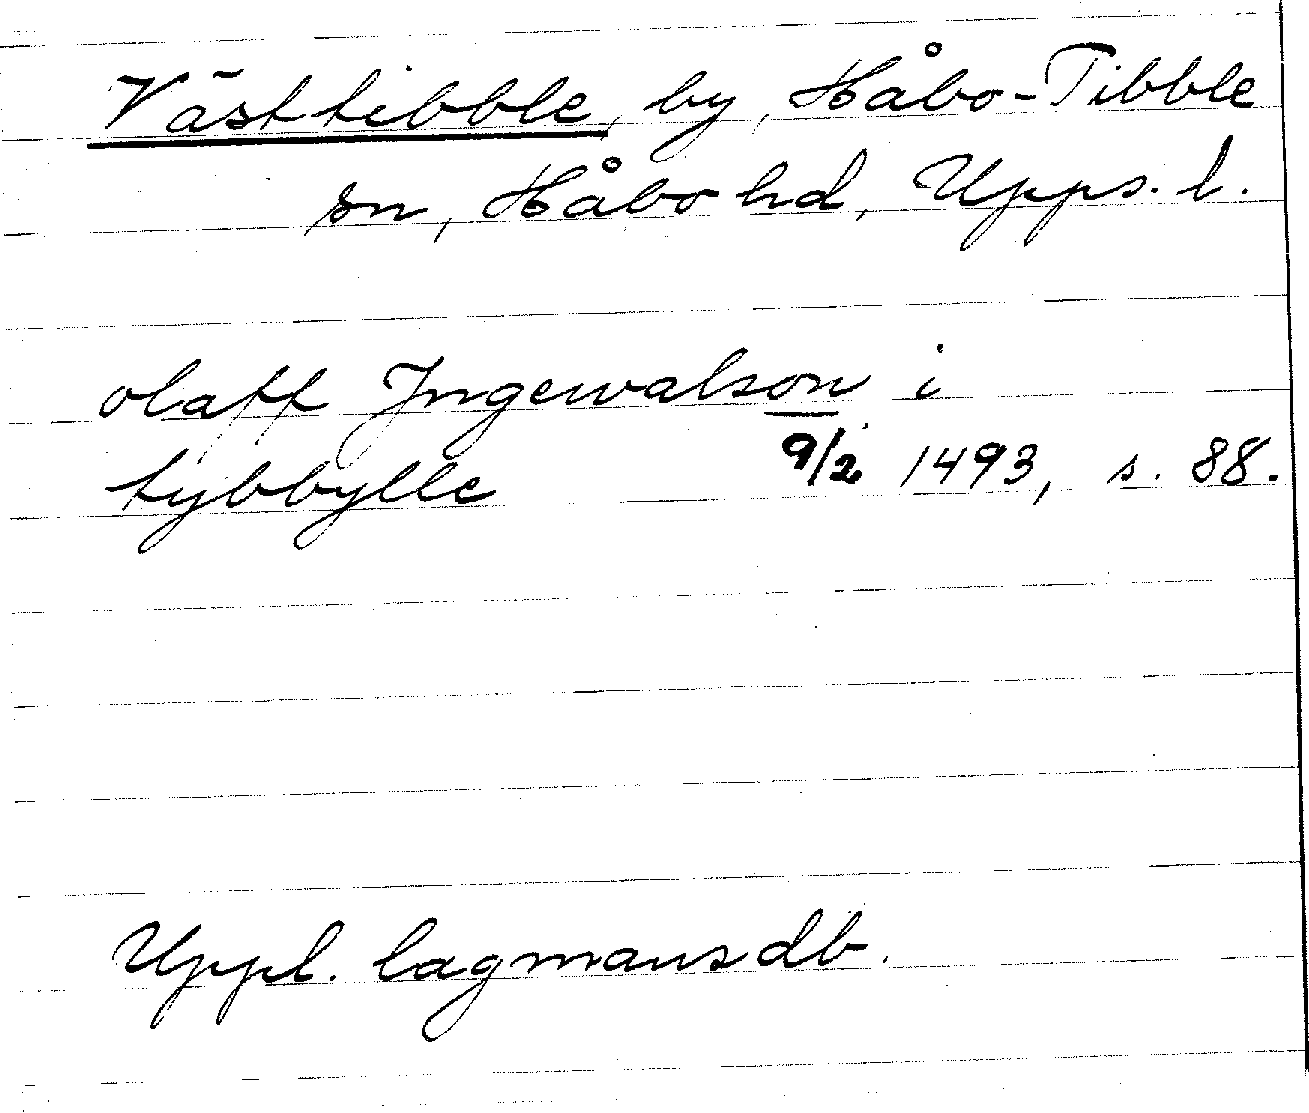 Västtibble, by, Håbo-Tibble
sn, Håbo hd, Upps. l.
olaff Jngewalson i
tybbylle 9/2 1493, s. 88.
Uppl. lagmansdb.